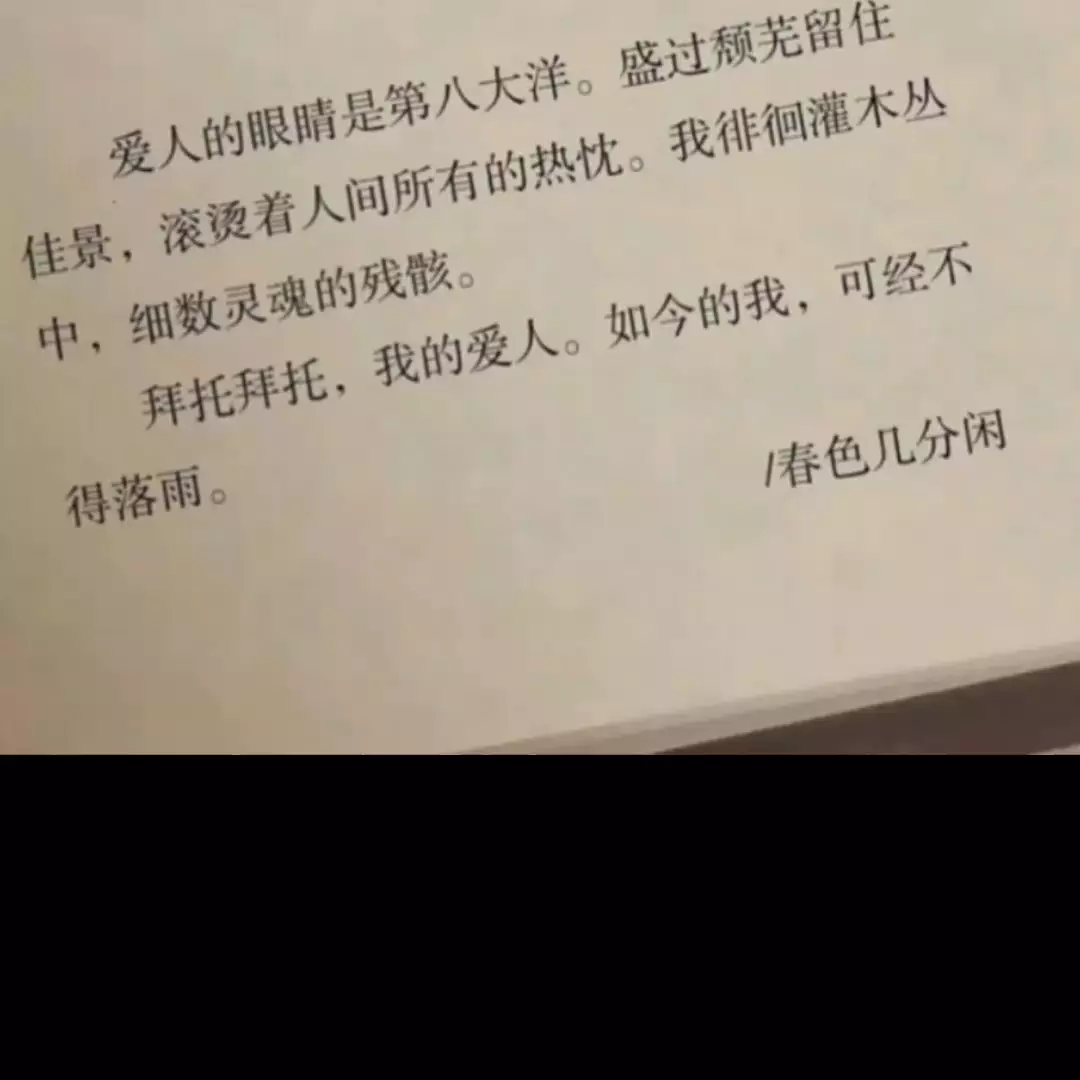 爱人的眼睛是第八大洋。盛过颓芜留住
佳景，滚烫着人间所有的热忱。我徘徊灌木丛
中，细数灵魂的残骸。
拜托拜托，我的爱人。如今的我，可经不
得落雨。
/春色几分闲